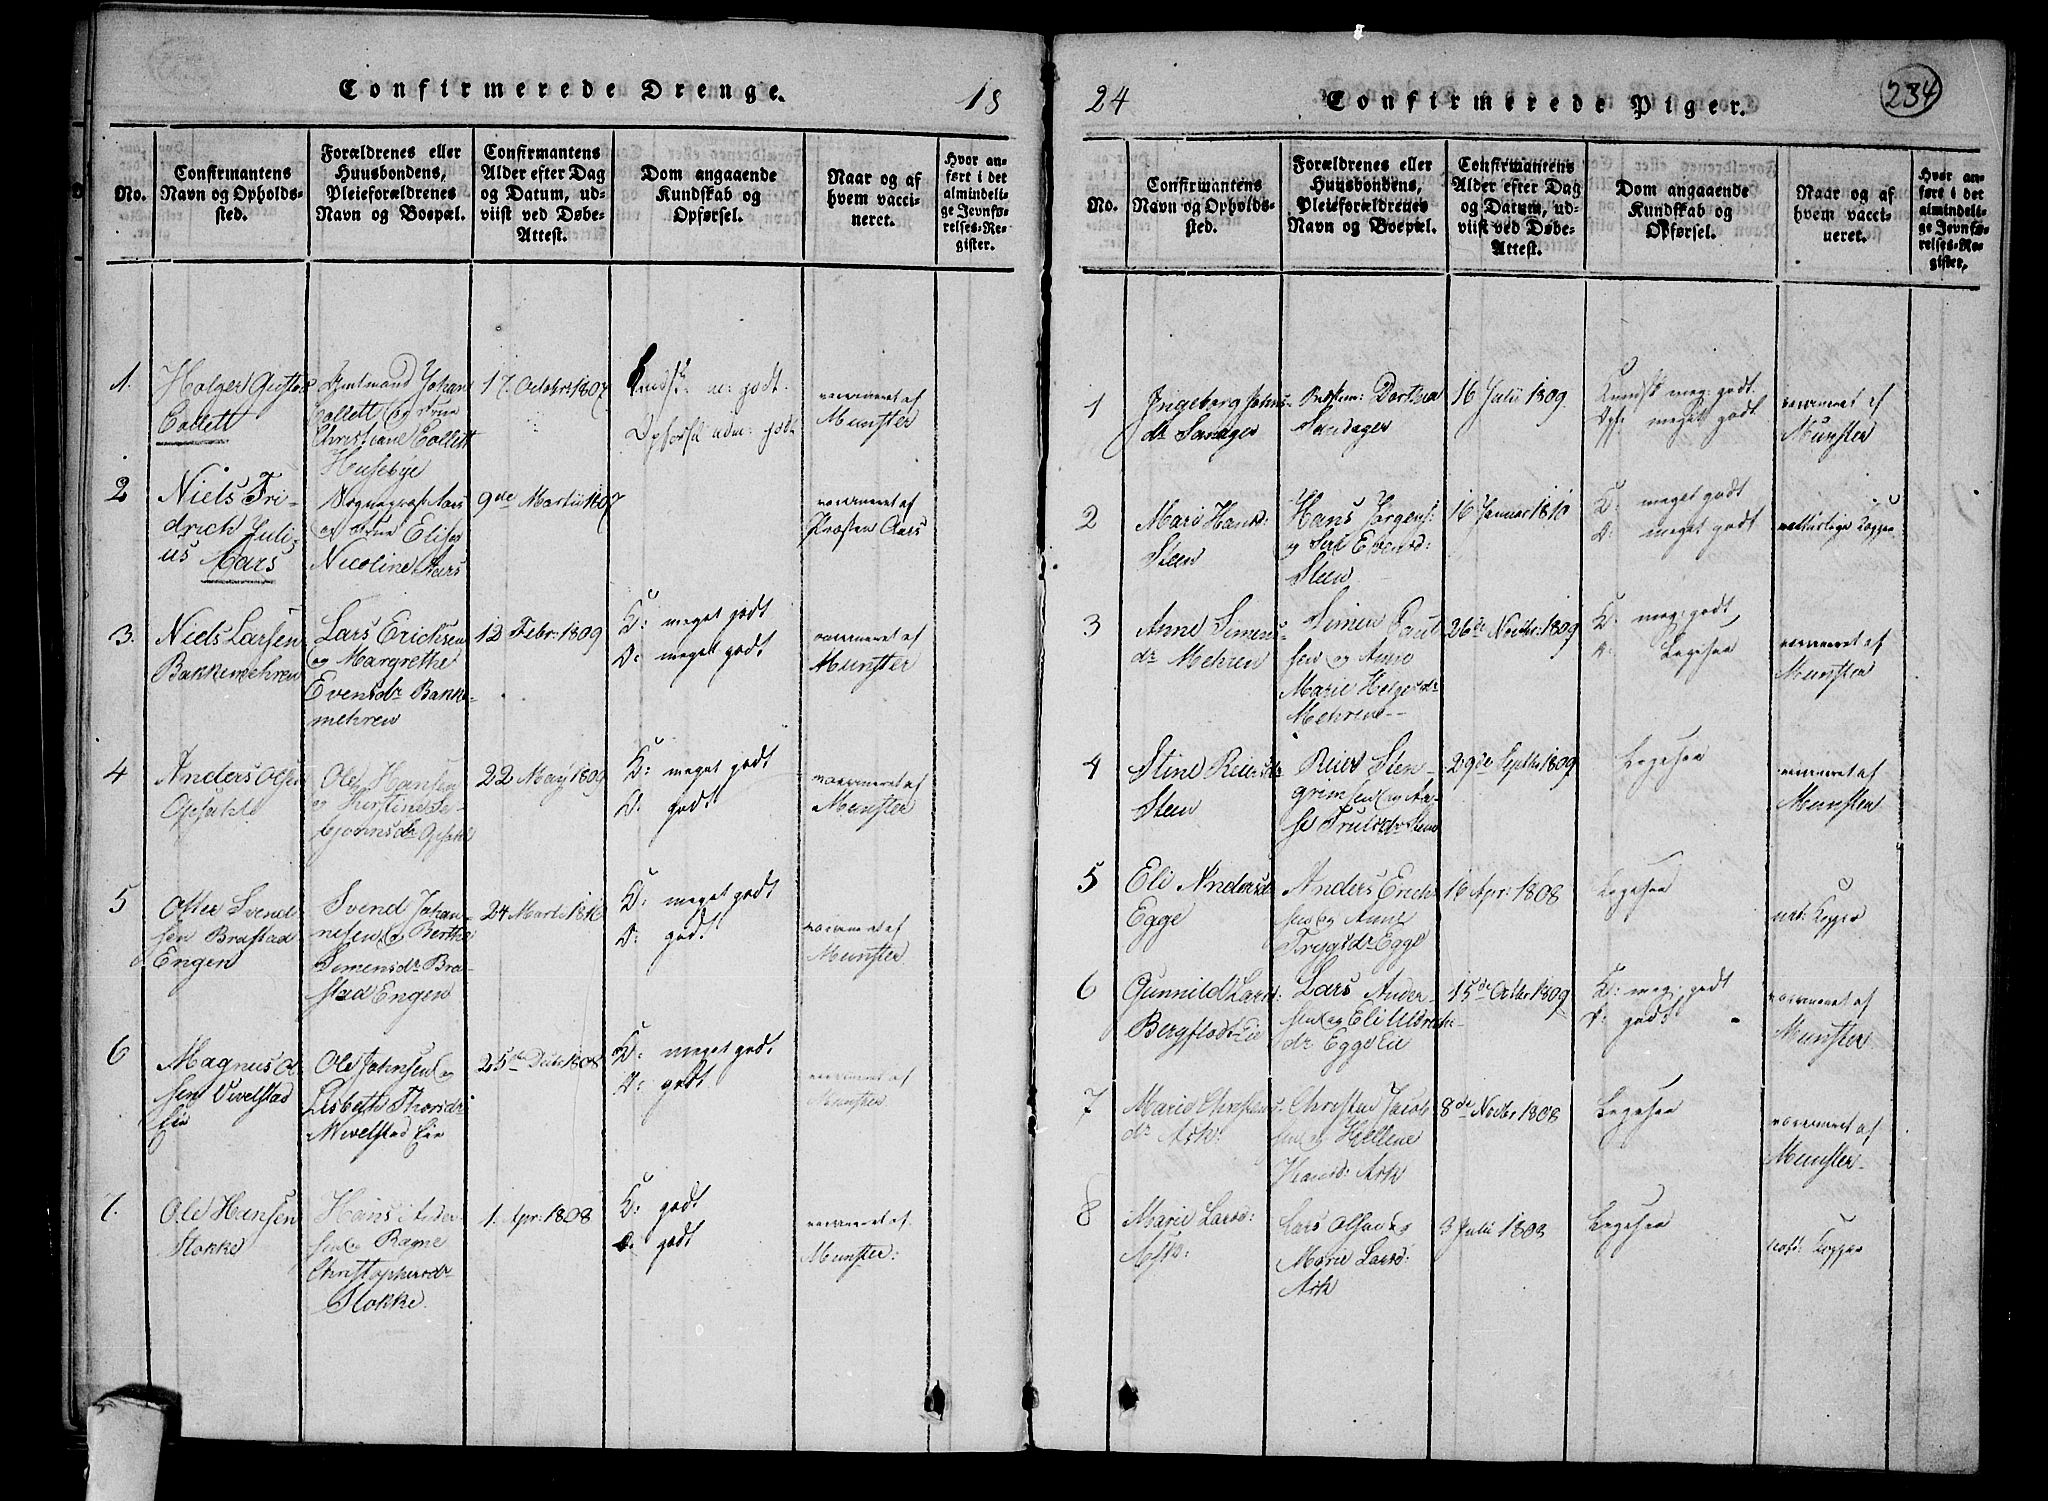 Confirmerede Drenge.
18
No.
Confirmantens
Navn og Opholds-
sted.
Forældrenes eller
Huusbondens,
Pleieforældrenes
Navn og Boepæl.
Confirmantens
Alder efter Dag
og Datum, ud-
viist ved Døbe-
Attest.
Dom angaaende
Kundskab og
Opførsel.
Naar og af
hvem vacci-
neret.
Hvor an-
ført i det
almindeli-
ge Jevnfø-
relses-Re-
gister.
1.
Holger Gustav
Collett
Amtmand Johan
Collett og Frue
Christiane Collett
Husebye
17. Octobr 1807
Kundsk: m: godt.
Opførsel udm: godt
vaccineret af
Munster
2
Niels Fri-
drich Juli-
us Aars
Sognepræst Aars
og Frue Elise
Nicoline Aars
9de Martii 1807
vaccineret af
Præsten Aars
3.
Niels Larsen
Bakkemehren
Lars Ericksen
og Margrethe
Evensdr Bakke-
mehren
12 Febr: 1809
K: meget godt
O: meget godt
vaccineret af
Munster
4
Anders Olsen
Opsahl
Ole Hansen
og Kirstine
Bjørnsdr Opsahl
22 May 1809
K: meget godt
O: godt
vaccineret af
Munster
5
Otter Svend-
sen Brastad
Engen
Svend Johan-
nesen og Berthe
Simensdr Bra-
stad Engen
24 Marti 1810
K: meget godt
O: godt
vaccineret af
Munster
6
Magnus Ol-
sen Vivelstad
Eie
Ole Johnsen og
Lisbeth Thorsdr
Vivelstad Eie
25de Decbr 1808
K: meget godt
O: godt
vaccineret af
Munster
7.
Ole Hansen
Stokke
Hans Ander-
sen og Ragne
Christophersdr
Stokke.
1. Apr: 1808
K: godt
O: godt
vaccineret af
Munster:
24
Confirmerede Piger.
234
No.
Confirmantens
Navn og Opholds-
sted.
Forældrenes eller
Huusbondens,
Pleieforældrenes
Navn og Boepæl.
Confirmantens
Alder efter Dag
og Datum, ud-
viist ved Døbe-
Attest.
Dom angaaende
Kundskab og
Opførsel.
Naar og af
hvem vacci-
neret.
Hvor an-
ført i det
almindeli-
ge Jevnfø-
relses-Re-
gister.
1
Ingeborg Johns-
dr Sandager
Dorthea
Sandager
16 Julii 1809.
Kundsk meg: godt.
Opf: meget godt
vaccineret af
Munster
2
Mari Hansd:
Steen
Hans Jørgens:
og Siri Evensd:
Steen
16 Januar 1810
K: meget godt
O: meget godt
naturlige Kopper
3
Anne Simens-
dr Mehren
Simen Paul-
sen og Anne
Marie Helgesdr
Mehren
26de Novbr 1809
K: meg: godt,
O: Ligesaa
vaccineret af
Munster
4
Stine Reiersdr
Steen
Reier Sten-
grimsen og Aa-
se Trulsdr Steen
29de Septbr 1809
Ligesaa
vaccineret af
Munster
5
Eli Andersdr
Egge
Anders Erich-
sen og Anne
Trygsdr Egge
16 Apr: 1808
Ligesaa
nat: Kopper
6
Gunnild Larsd:
Bergflodt Eie
Lars Ander-
sen og Eli Ulrichs-
dr Egge Eie
15de Octbr 1809
K: meg: godt
O: godt
vaccineret af
Munster
7
Marie Christens-
dr Ask:
Christen Jacob-
sen og Hellene
Hansd: Ask
8de Novbr 1808
Ligesaa
vaccineret af
Munster
8
Marie Larsd:
Ask:
Lars Olsen og
Marie Larsd:
Ask
3 Julii 1808
Ligesaa
nat: Kopper